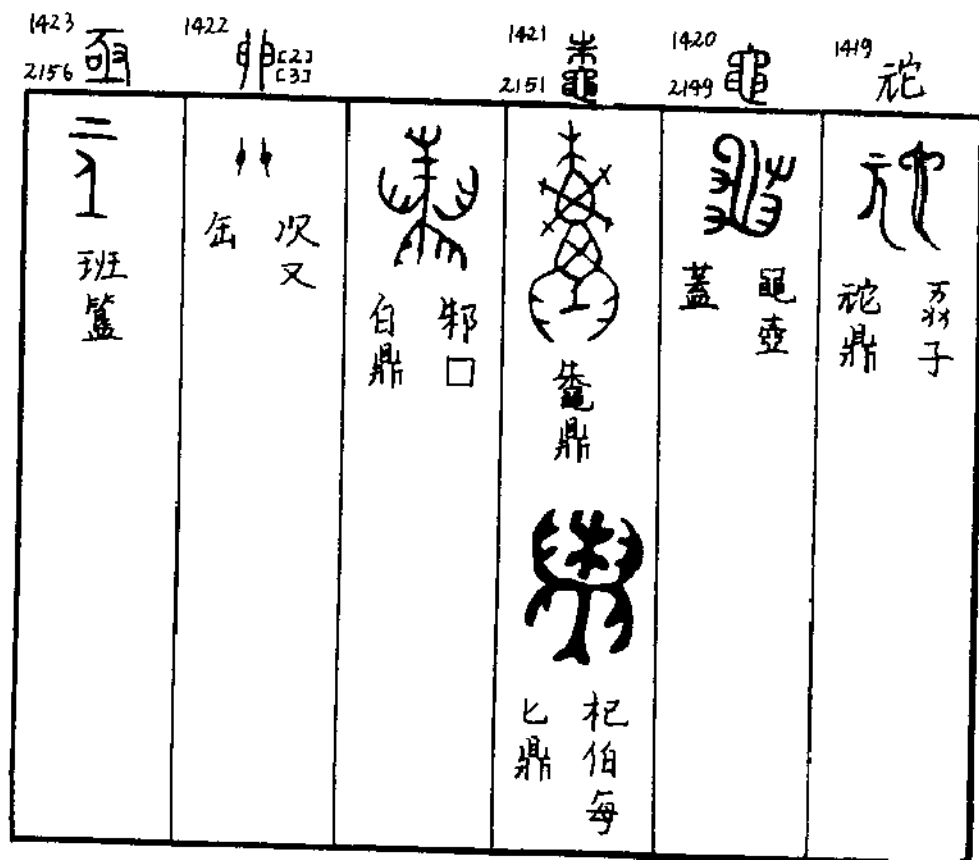 1419
子
鼎
1420
2149
黽
黽壺
蓋
1421
2151
鼄
鼄鼎
杞伯每
匕鼎
邾□
白鼎
1422
卵
[2]
[3]
次又
缶
1423
2156
亟
班簋